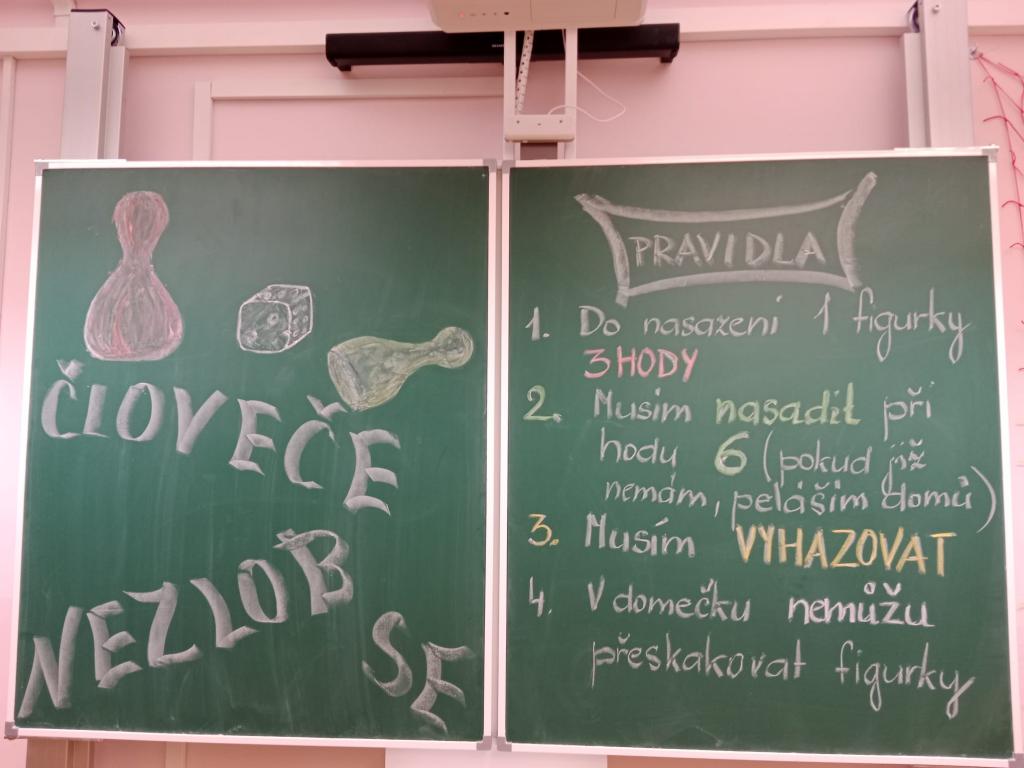 ČLOVEČE
NEZLOB
SE
PRAVIDLA
1. Do nasazení 1 figurky
3 HODY
2. Musím nasadit při
hody 6 (pokud již
nemám, pelášim domů)
3. Musím VYHAZOVAT
4. V domečku nemůžu
přeskakovat figurky